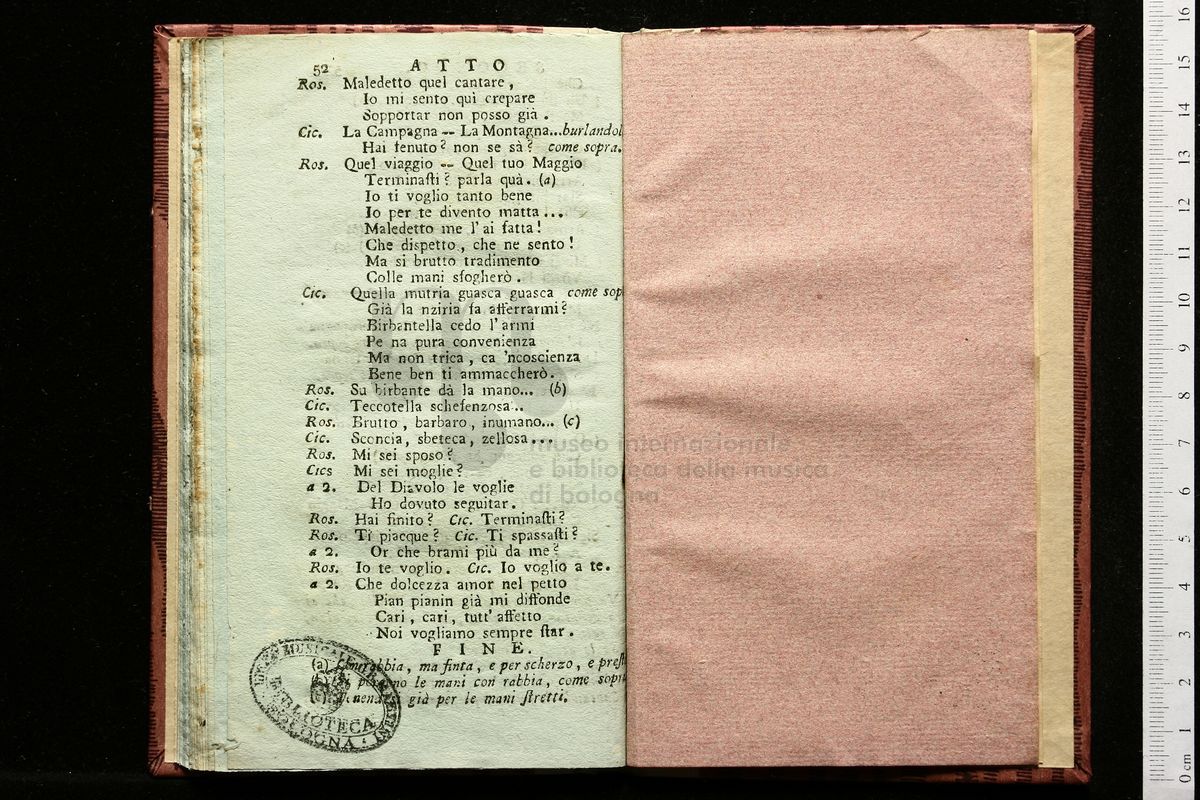 52 ATTO
Ros. Maledetto quel cantare,
Io mi sento quì crepare
Sopportar non posso già.
Cic. La Campagna -- La Montagna...burlandol
Hai fenuto? non se sà? come sopra.
Ros. Quel viaggio -- Quel tuo Maggio
Terminaſti? parla quà. (a)
Io ti voglio tanto bene
Io per te divento matta...
Maledetto me l'ai fatta!
Che dispetto, che ne sento!
Ma si brutto tradimento
Colle mani sfogherò.
Cic. Quella mutria guasca guasca come sop
Già la nziria fa afferrarmi?
Birbantella cedo l'armi
Pe na pura convenienza
Ma non trica, ca 'ncoscienza
Bene ben ti ammaccherò.
Ros. Su birbante dà la mano... (b)
Cic. Teccotella schefenzosa...
Ros. Brutto, barbaro, inumano... (c)
Cic. Sconcia, sbeteca, zellosa...
Ros. Mi sei sposo?
Cics Mi sei moglie?
a 2. Del Diavolo le voglie
Ho dovuto seguitar.
Ros. Hai finito? Cic. Terminaſti?
Ros. Ti piacque? Cic. Ti spassaſti?
a 2. Or che brami più da me?
Ros. Io te voglio. Cic. Io voglio a te.
a 2. Che dolcezza amor nel petto
Pian pianin già mi diffonde
Cari, cari, tutt' affetto
Noi vogliamo sempre ſtar.
FINE.
(a) rabbia, ma finta, e per scherzo, e preſt
no le mani con rabbia, come sopr
già per le mani ſtretti.
BIBLIOTECA
BOLOGNA
museo internazionale
e biblioteca della musica
di bologna
0 cm 1 2 3 4 5 6 7 8 9 10 11 12 13 14 15 16